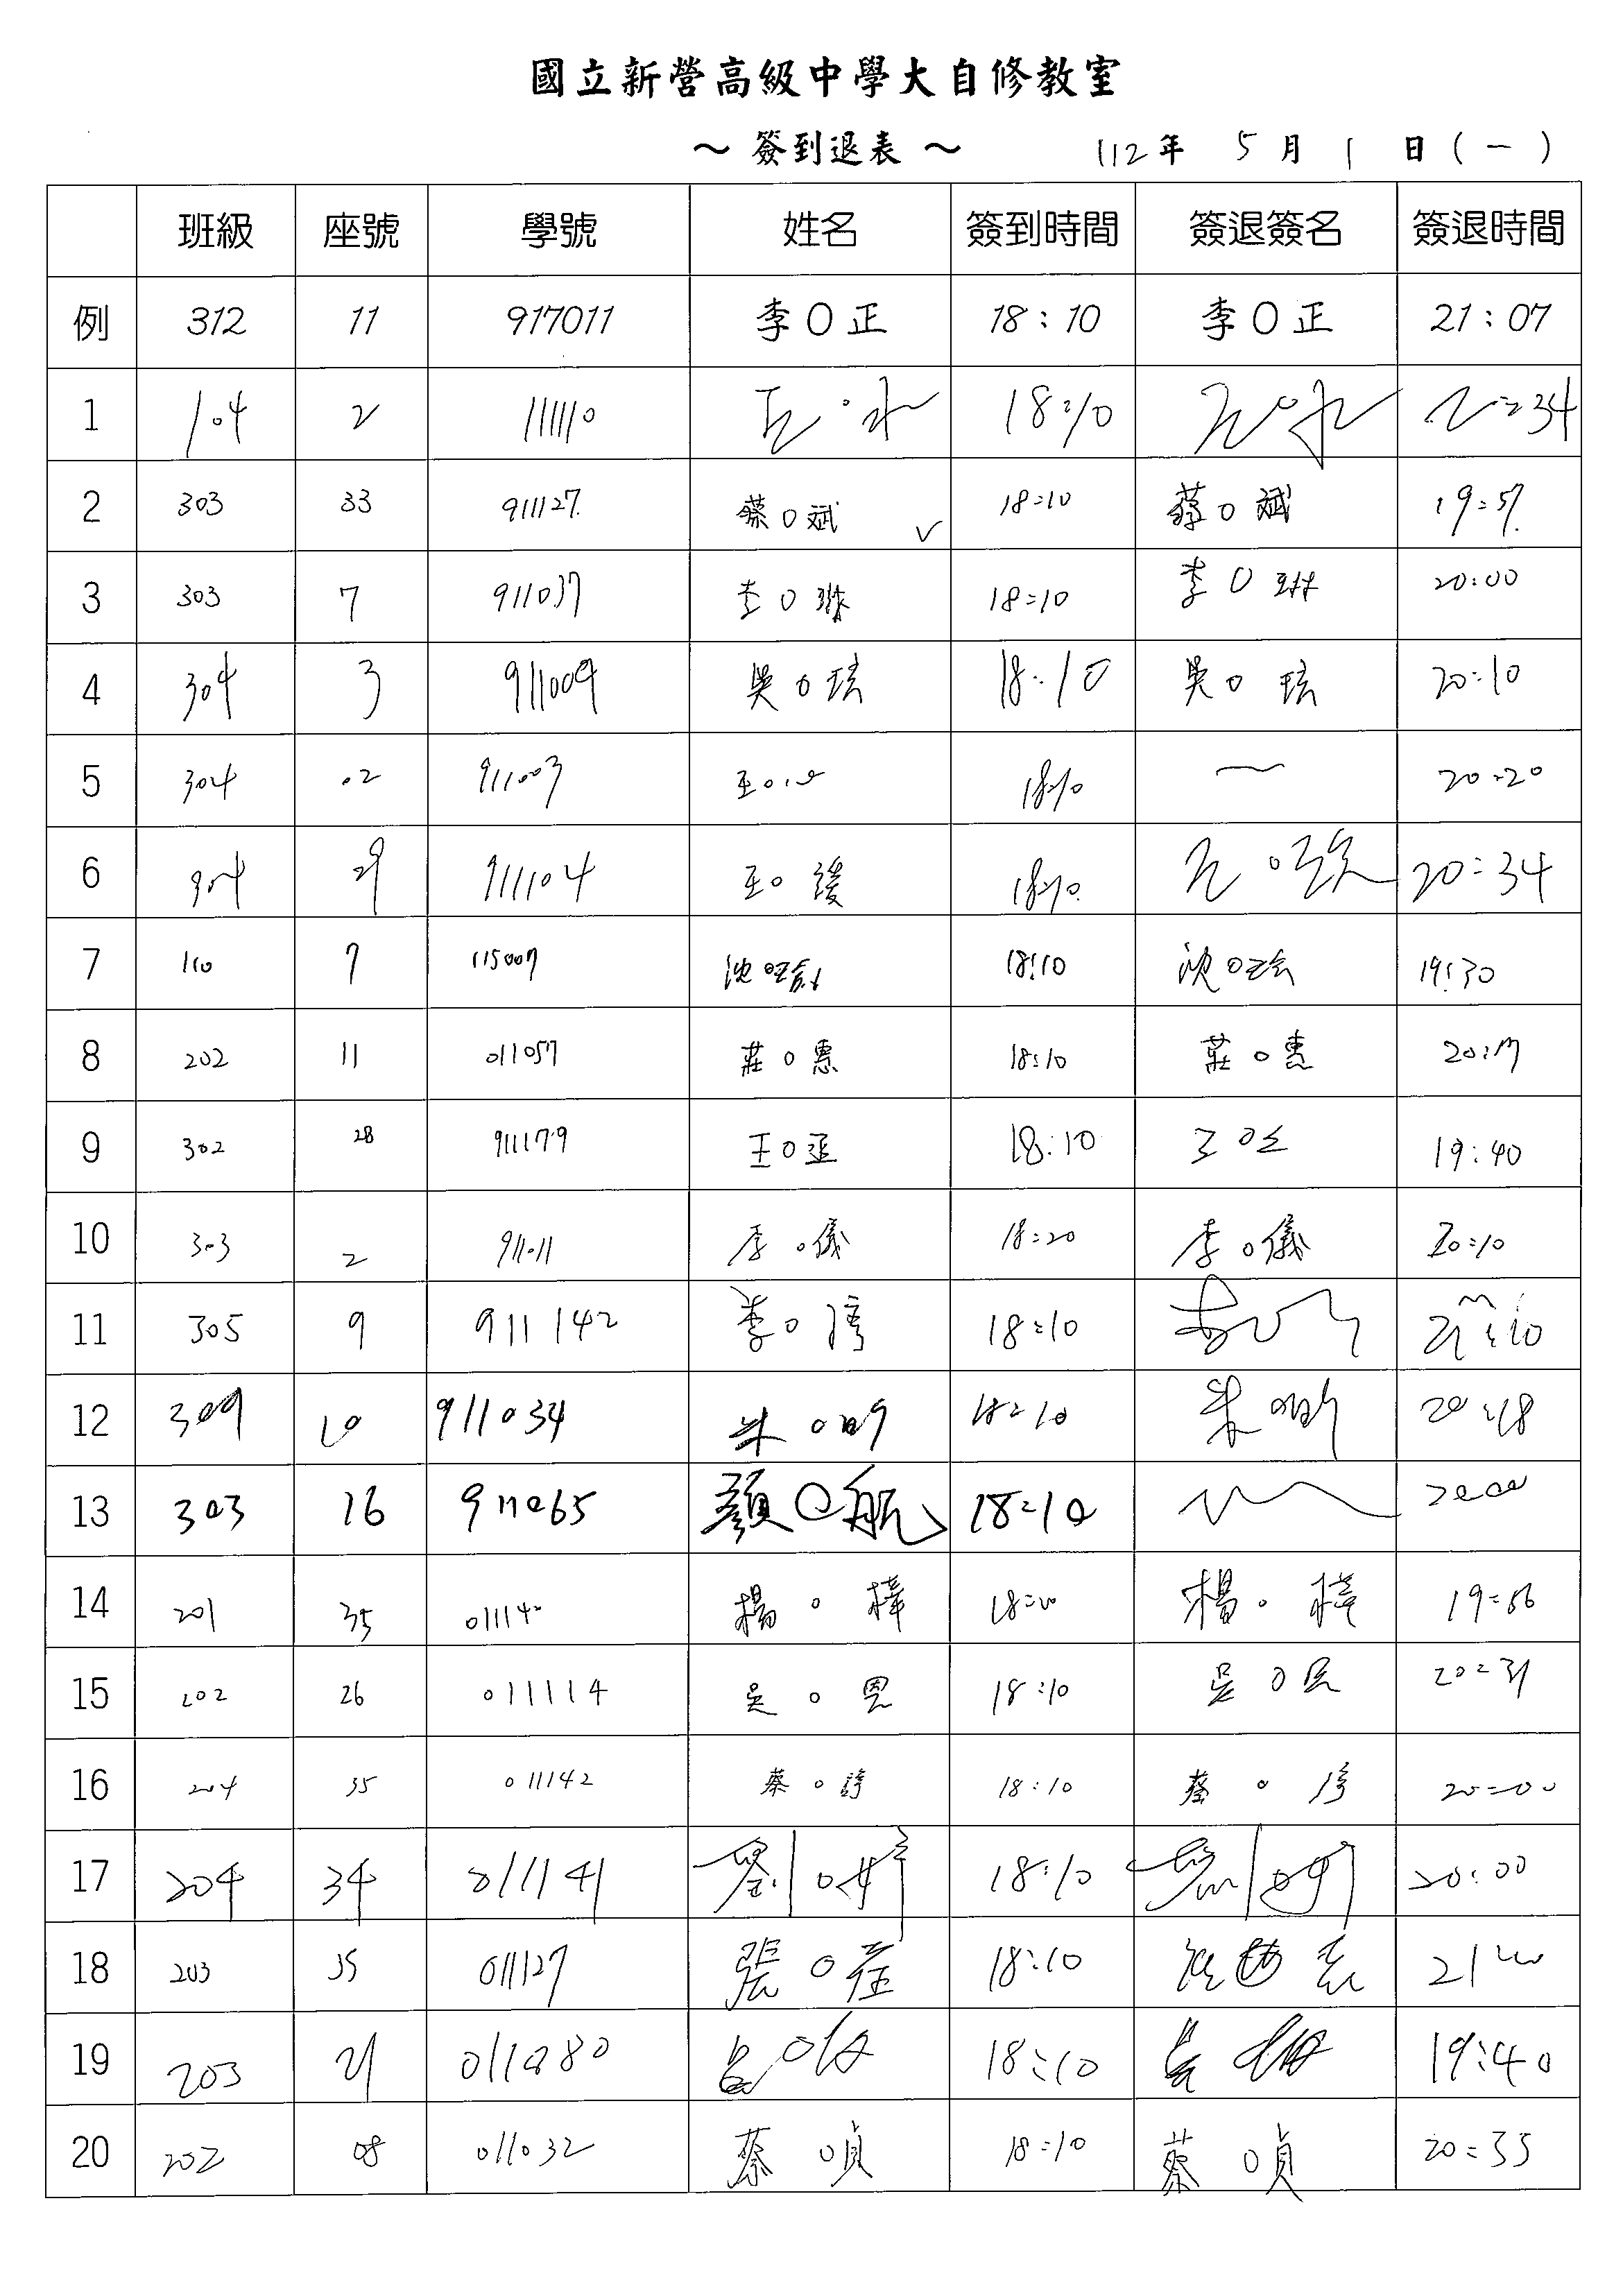 國立新營高級中學大自修教室
～ 簽到退表 ～ 112年 5月 1日(一)
班級 座號 學號 姓名 簽到時間 簽退簽名 簽退時間
例 312 11 917011 李O正 18:10 李O正 21:07
1 104 2 111110 18:10
2 303 33 911127 蔡O斌 ✓ 18:10 蔡O斌 19:57
3 303 7 911037 李O琳 18:10 李O琳 20:00
4 304 3 911009 吳O琺 18:10 吳O琺 20:10
5 304 02 911003 18:10 20:20
6 304 911104 王O 18:10 20:34
7 110 7 115007 沈O 18:10 沈O 19:30
8 202 11 011057 莊O惠 18:10 莊O惠 20:17
9 302 28 911179 王O 18:10 19:40
10 303 2 911011 李O儀 18:20 李O儀 20:10
11 305 9 911142 李O 18:10
12 309 10 911034 朱O明 18:10 朱O明 20:18
13 303 16 911065 顏O航 18:10 2000
14 201 35 011140 楊O樟 18:10 楊O樟 19:56
15 202 26 011114 吳O恩 18:10 吳O恩 20:31
16 204 35 011142 蔡O諄 18:10 蔡O 20:00
17 204 34 011141 劉O婷 18:10 20:00
18 203 35 011127 張O 18:10
19 203 21 011080 18:10 19:40
20 202 08 011032 蔡O貞 18:10 蔡O貞 20:35